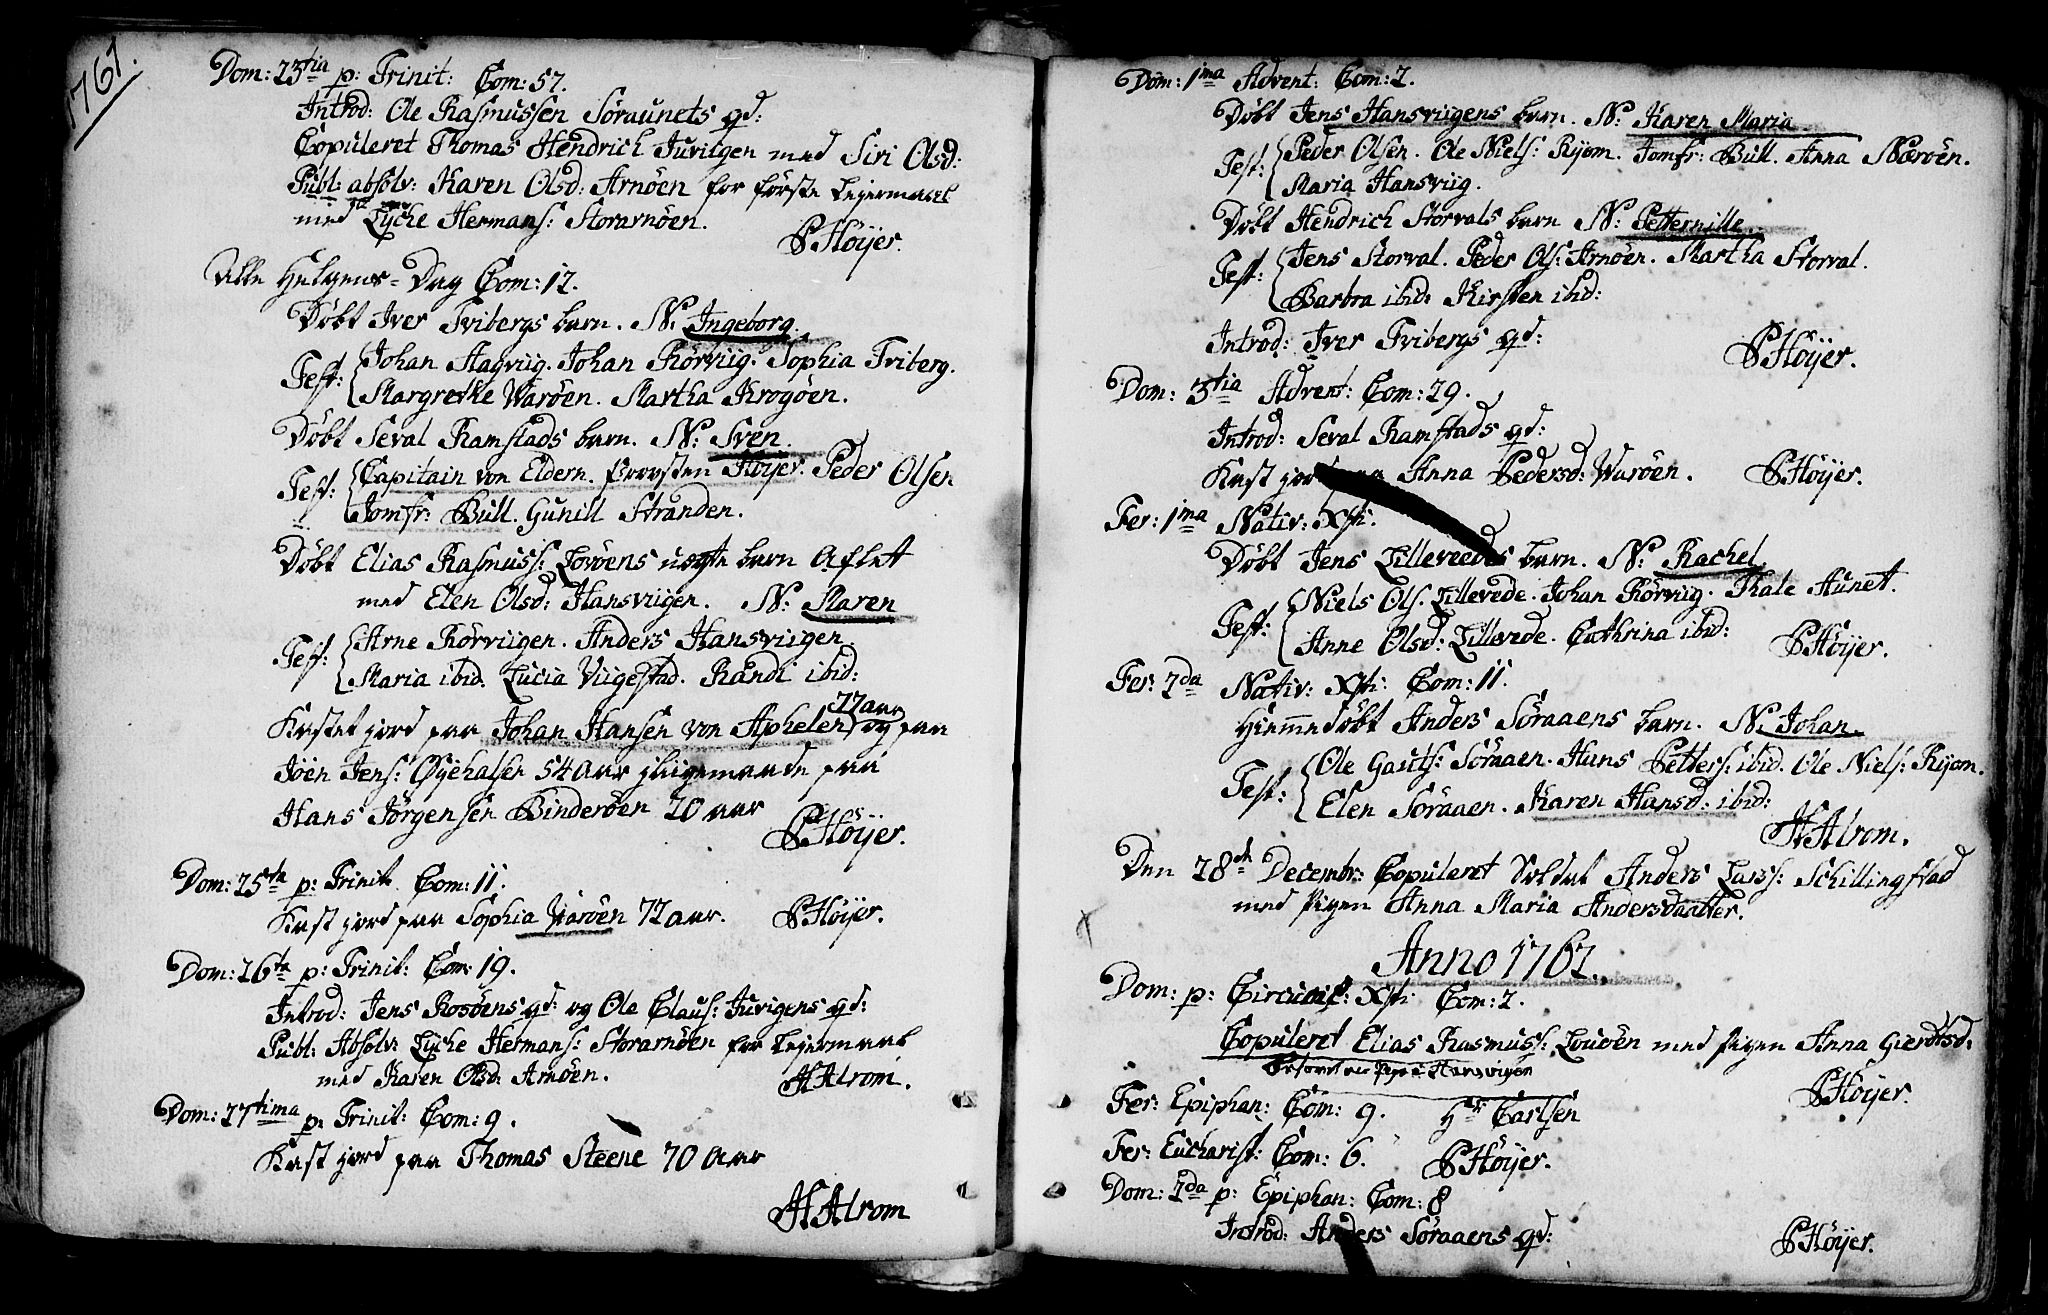 1761.
Dom: 23tia p: Trinit: Com: 57.
Introd: Ole Rasmussen Söraunets qd:
Copuleret Thomas Hendrich Juvitgen med Siri Olsd:
Publ: absolv: Karen Olsd: Arnöen for förste Leyermaael
med Lyche Hermans: Storarnöen.
PHöijer.
Alle Helgens-Dag Com: 12.
Döbt Iver Tvibergs barn. N: Ingeborg.
Test: Johan Flagviig. Johan Rörviig. Sophia Tviberg.
Margrethe Waröen. Martha Krogöen.
Döbt Seval Ramstads barn. N: Sven.
Test: Capitain von Eldern. Provsten Höijer. Peder Olsen
Jomfr: Bull. Gunill Stranden.
Döbt Elias Rasmuss: Lovöens uægte barn Aflet
med Elen Olsd: Hansviigen. N: Maren
Test: Arne Rörviigen. Anders Hansviigen
Maria ibid: Lucia Viigestad. Randi ibid:
77 aar
Kastet jord paa Johan Hansen von Aphelen og paa
Joen Jens: Öyehalsen 54 Aar jligemaade paa
Hans Jörgensen Binderöen 20 aar
PHöijer.
Dom: 25ta p: Trinit. Com: 11.
Kast jord paa Sophia Waröen 72 aar. PHöijer.
Dom: 26ta p: Trinit: Com: 19.
Introd: Jens Rosöens qd: og Ole Claus: Juvigens qd:
Publ: Absolv: Lyche Hermans: Storarnöen for Leyermaal
med Karen Olsd: Arnöen. HAlrom.
Dom: 27tima p: Trinit: Com: 9.
Kast jord paa Thomas Steene 70 Aar
HAlrom
Dom: 1ma Advent: Com: 2.
Döbt Jens Hansviigens barn. N: Karen Maria
Test: Peder Olsen. Ole Niels: Kjom. Jomfr: Bull. Anna Næröen.
Maria Hansviig.
Döbt Hendrich Storvals barn N: Petternille
Test: Jens Storval. Peder Ols: Arnöen. Martha Storval.
Barbra ibid: Kirsten ibid:
Introd: Iver Tvibergs qd:
PHöijer.
Dom: 3tia Advent: Com: 29.
Introd: Seval Ramstads qd:
Kast jord paa Anna Pedersd: Waröen. PHöijer.
Fer: 1ma Nativ: Xsti:
Döbt Jens Lilleveedes barn. N: Rachel
Test: Niels Ols. Lillevede. Johan Rörviig. Thale Aunet.
Anne Olsd: Lillevede. Cathrina ibid:
PHöijer.
Fer: 2da Nativ: Xsti: Com: 11.
Hiemmedöbt Anders Söraaens barn. N: Johan.
Test: Ole Gasits: Söraaen. Hans Petters: ibid. Ole Niels: Kijom.
Elen Soraaen. Karen Hansd: ibid:
HAlrom.
Den 28de Decembr: Copuleret Soldat Anders Lars: Schillingstad
med Pigen Anna Maria Andersdaatter.
Anno 1762.
Dom: p: Circumcis: Xsti Com: 2.
Copuleret Elias Rasmuss: Louöen med Pigen Anna Gierdtsd:
Hansviigen
PHöijer.
Fer: Epiphan: Com: 9. Hr Carlsen
Fer: Eucharist: Com: 6. PHöijer.
Dom: 2da p: Epiphan: Com: 8
Introd: Anders Söraaens qd:
PHöijer.